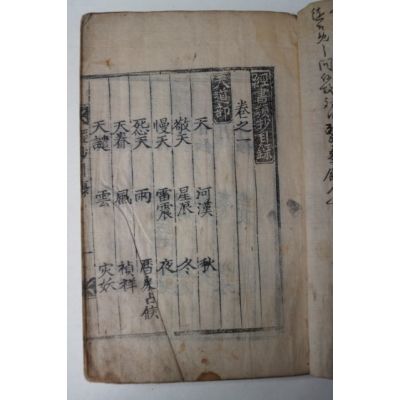 經書類抄目錄
卷之一
天道部
天 河漢 秋
敬天 星辰 冬
慢天 雷震 夜
怨天 雨 曆象占候
天眷 風 禎祥
天譴 雲 灾妖